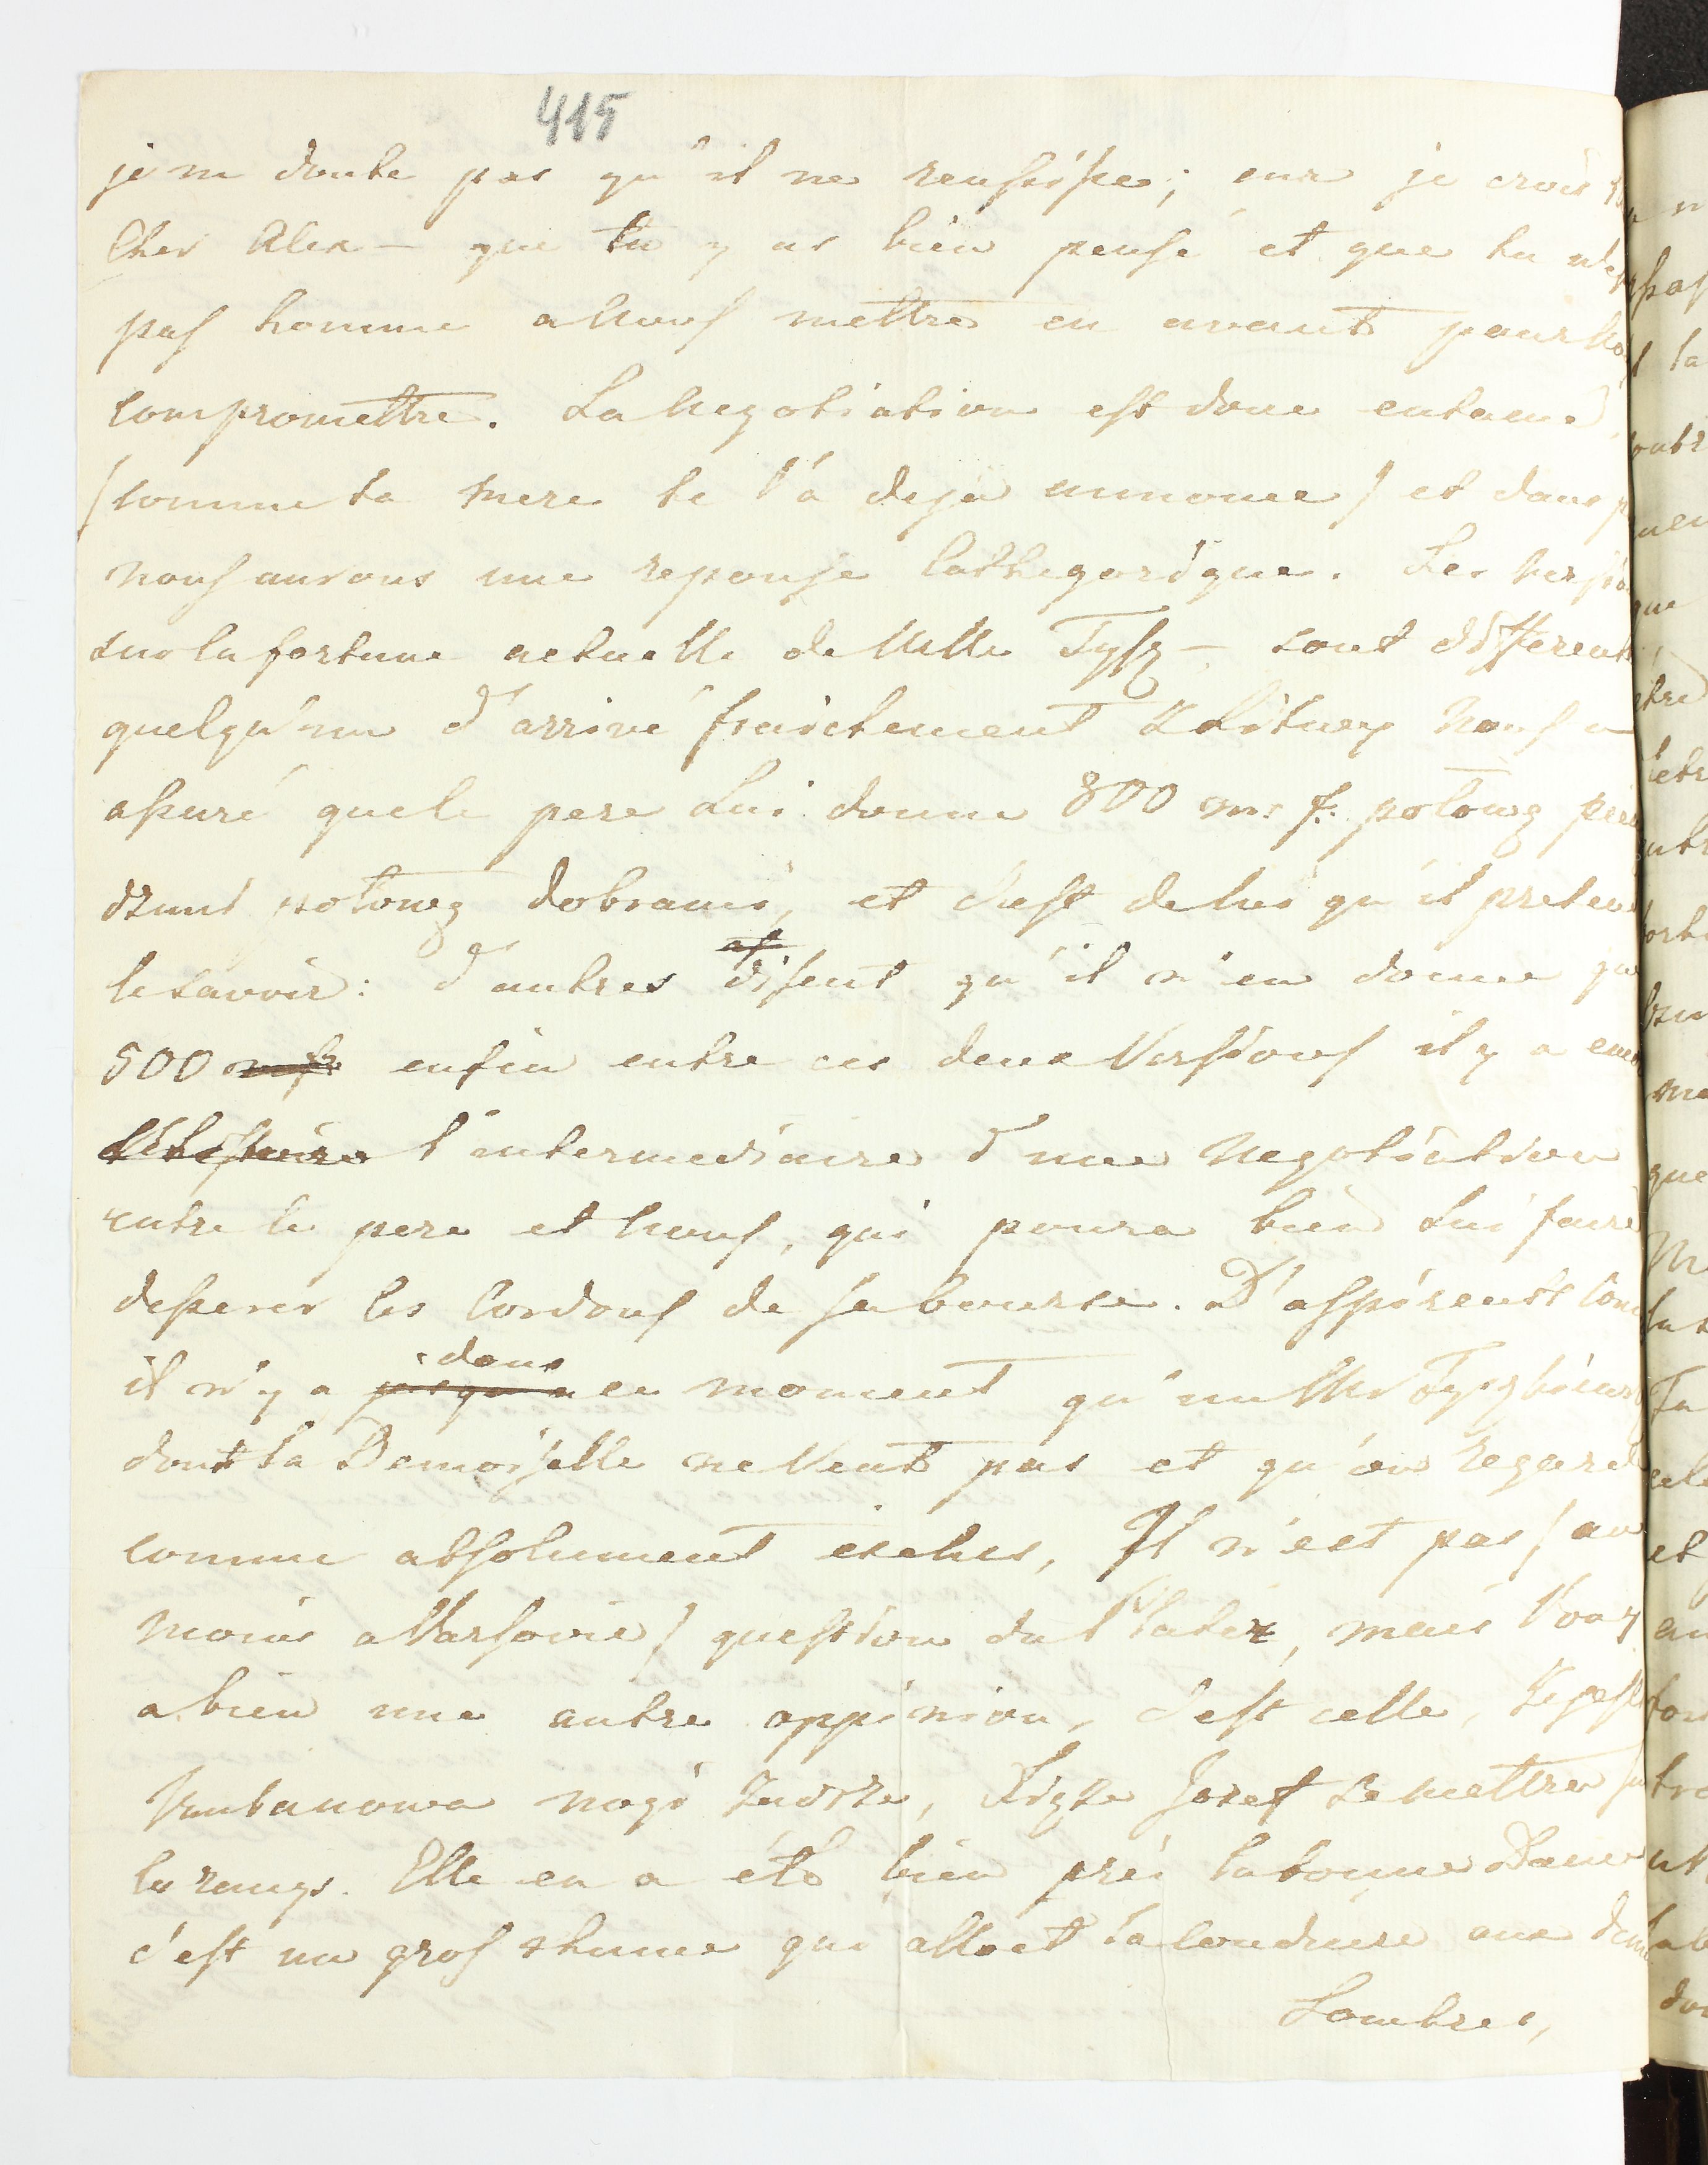 415
je ne doute pas qu'il ne reussisse; car je crois
Cher Alex – que tu y as bien pensé et que tu n'es
pas homme a nous mettre en avant pour
compromettre. La negotiation est donc entamé
/comme ta mere te l'a deja annoncé/ et dans
nous aurons une reponse Cathegorique. Les versio
sur la fortune actuelle de Mlle Tysz – sont differente
quelqu'un d'arrivé fraichement z Litwy nous a
assuré que le pere Lui donne 800 m. f. połowę pie
dzmi połowę dobrami, et c'est de lui qu'il preten
le savoir: d'autres disent qu'il n'en donne que
500 enfin entre ces deux Versions il y a
l'intermediaire d'une Negotiation
entre le pere et nous, qui poura bien Lui faire
desserer les Cordons de sa bourse. D'asspirents
il n'y a dans ce moment qu'un Mr
dont la Demoiselle ne Veut pas et qu'on regarde
comme absolument exclus, Il n'est pas /au
moins a Varsovie/ question du mais
a bien une autre oppinion, c'est celle,
nogi Jozef se mettre
les rangs. Elle en a été bien près la bonne Dame
c'est un gros rhume qui alloit la conduire aux
Sombres,